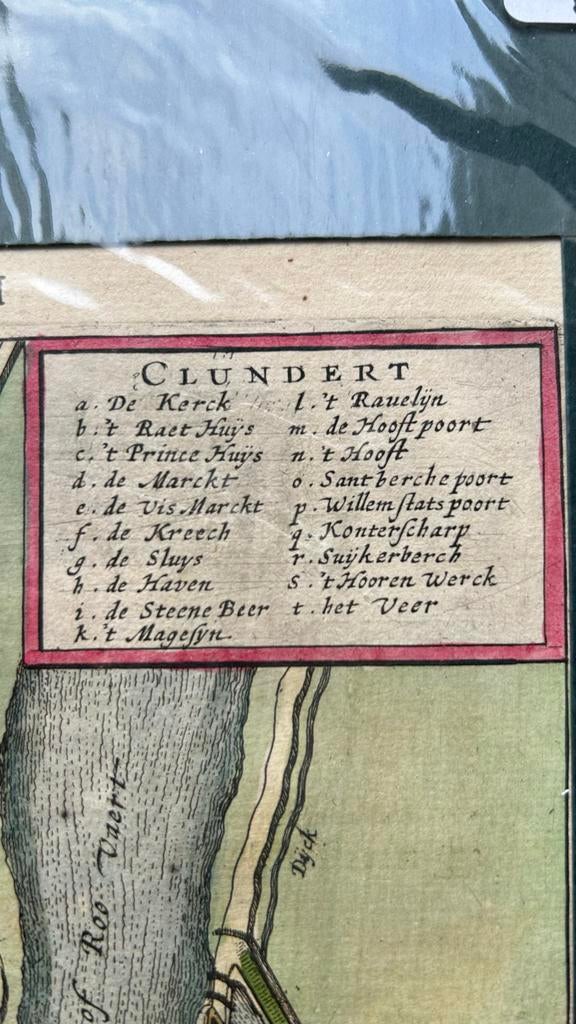 CLUNDERT
a. De Kerck
b. 't Raet Huÿs
c. 't Prince Huÿs
d. de Marckt
e. de Vis Marckt
f. de Kreech
g. de Sluys
h. de Haven
i. de Steene Beer
k. 't Magesyn.
l. 't Ravelÿn
m. de Hooft poort
n. 't Hooft
o. Santberche poort
p. Willemstats poort
q. Konterscharp
r. Suÿkerberch
S. 't Hooren Werck
t. het Veer
of Roo Vaert
Dÿck